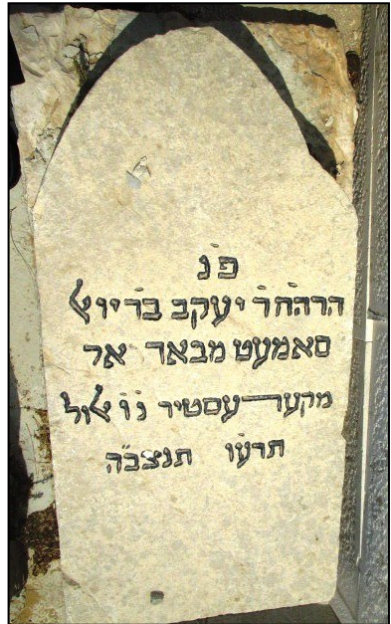 פ׳ נ׳
הרה׳ח׳ר׳ יעקב בר׳ יוﭏ
סאמעט מבאד׳ אר
מקער־עסטיר נ׳ ו׳ ﭏול
תרעו׳ תנצב״ה